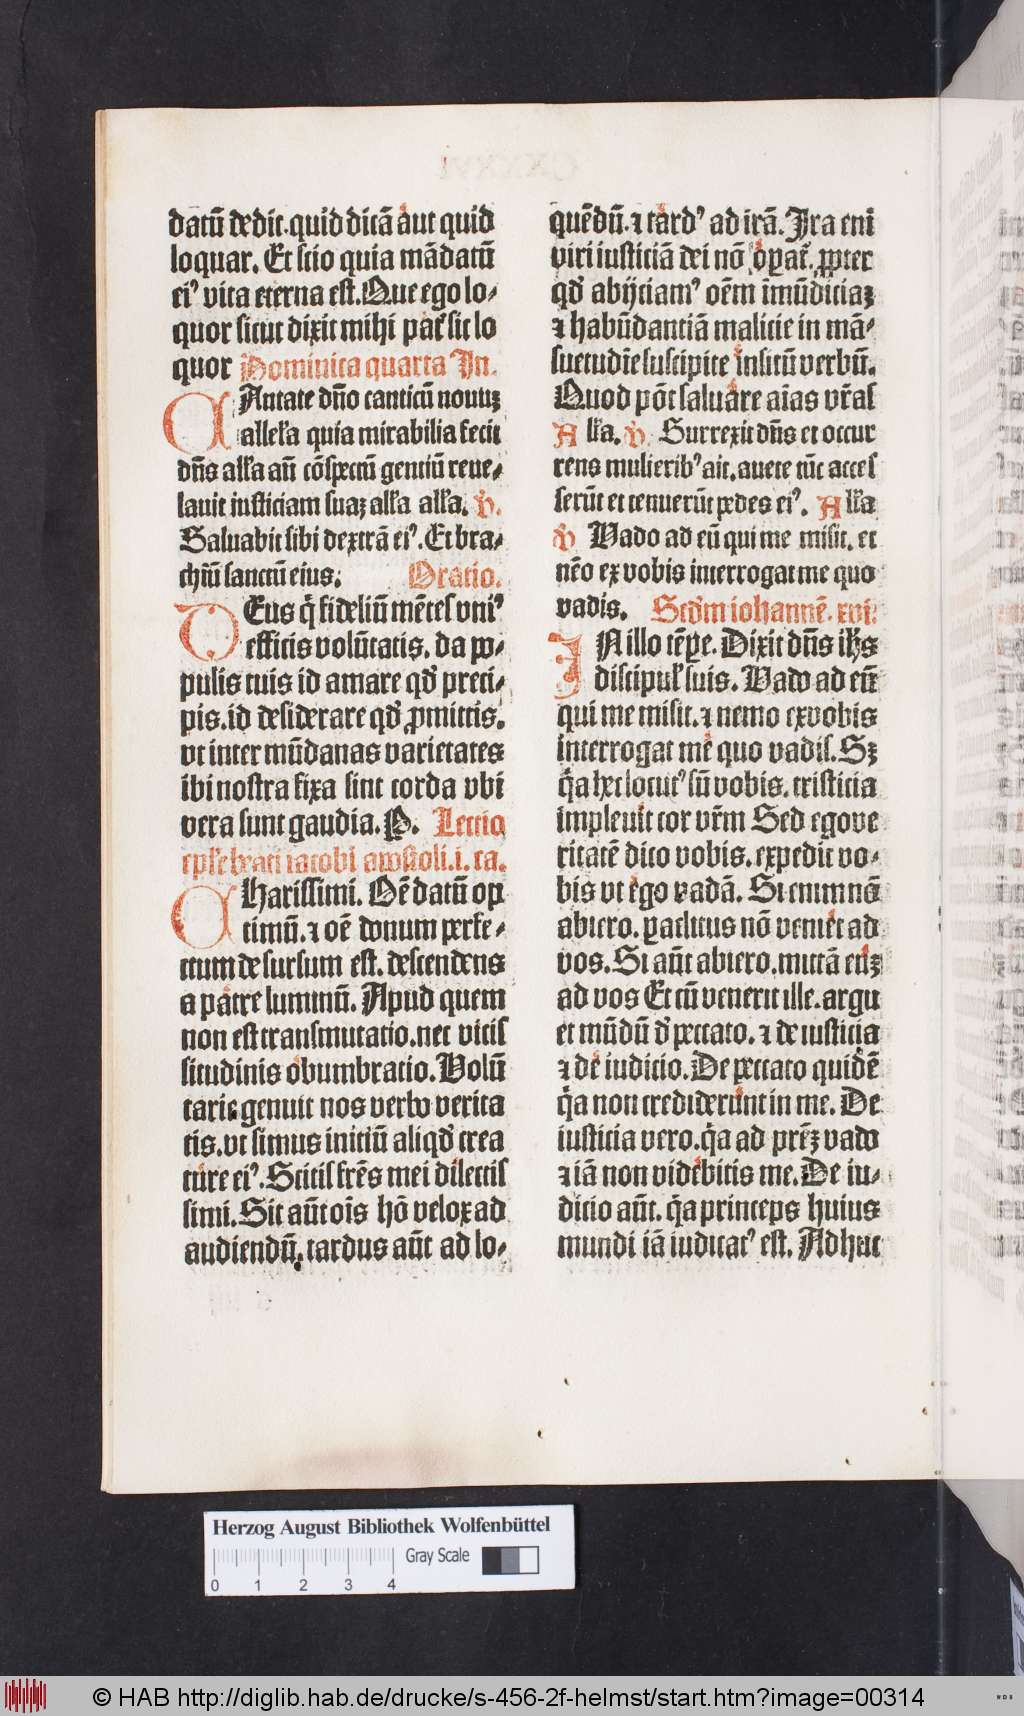 datū dedit. quid dicā aut quid
loquar. Et scio quia mādatū
eiꝰ vita eterna est. Que ego lo⸗
quor sicut dixit mihi pat̄ sic lo
quor Dominica quarta In.
CAntate dn̄o canticū nouuꝫ
allel̄a quia mirabilia fecit
dn̄s all̄a an̄ cōspectū gentiū reue⸗
lauit iusticiam suaꝫ all̄a all̄a. v̄.
Saluabit sibi dextrā eiꝰ. Et bra⸗
chiū sanctū eius. Oratio.
DEus q̄ fideliū mētes vniꝰ
efficis volūtatis. da po⸗
pulis tuis id amare qd̄ preci⸗
pis. id desiderare qd̄ ꝓmittis.
vt inter mūdanas varietates
ibi nostra fixa sint corda vbi
vera sunt gaudia. P. Lectio
ep̄le beati iacobi apostoli. i. ca.
CHarissimi. Oē datū op
timū. ⁊ oē donum perfe⸗
ctum de sursum est. descendens
a patre luminū. Apud quem
non est transmutatio. nec vicis
situdinis obumbratio. Volū
tarie genuit nos verbo verita
tis. vt simus initiū aliqd̄ crea
ture eiꝰ. Scitis fr̄es mei dilectis
simi. Sit aūt ois hō velox ad
audiendū. tardus aūt ad lo⸗
quēdū. ⁊ tardꝰ ad irā. Ira eni
viri iusticiā dei nō oꝑat̄. ꝓpter
qd̄ abijciamꝰ oēm īmūdiciaꝫ
⁊ habūdantiā malicie in mā⸗
suetudīe suscipite insitū verbū.
Quod pōt saluare aīas vr̄as
All̄a. v̄. Surrexit dn̄s et occur
rens mulieribꝰ ait. auete tūc acces
serūt et tenuerūt pedes eiꝰ. All̄a
v̄ Vado ad eū qui me misit. et
nēo ex vobis interrogat me quo
vadis. Scd̄m iohannē. xvi.
IN illo tēꝑe. Dixit dn̄s ih̄s
discipul̄ suis. Vado ad eū
qui me misit. ⁊ nemo ex vobis
interrogat me quo vadis. Sꝫ
q̄a hec locutꝰ sū vobis. tristicia
impleuit cor vr̄m Sed ego ve
ritatē dico vobis. expedit vo⸗
bis vt ego vadā. Si enim nō
abiero. ꝑaclitus nō veniet ad
vos. Si aūt abiero. mittā euꝫ
ad vos Et cū venerit ille. argu
et mūdū d̄ peccato. ⁊ de iusticia
⁊ de iudicio. De peccato quidē
q̄a non crediderunt in me. De
iusticia vero. q̄a ad prēꝫ vado
⁊ iā non videbitis me. De iu⸗
dicio aūt. q̄a princeps huius
mundi iā iudicatꝰ est. Adhuc
Herzog August Bibliothek Wolfenbüttel
Gray Scale
0 1 2 3 4
© HAB http://diglib.hab.de/drucke/s-456-2f-helmst/start.htm?image=00314